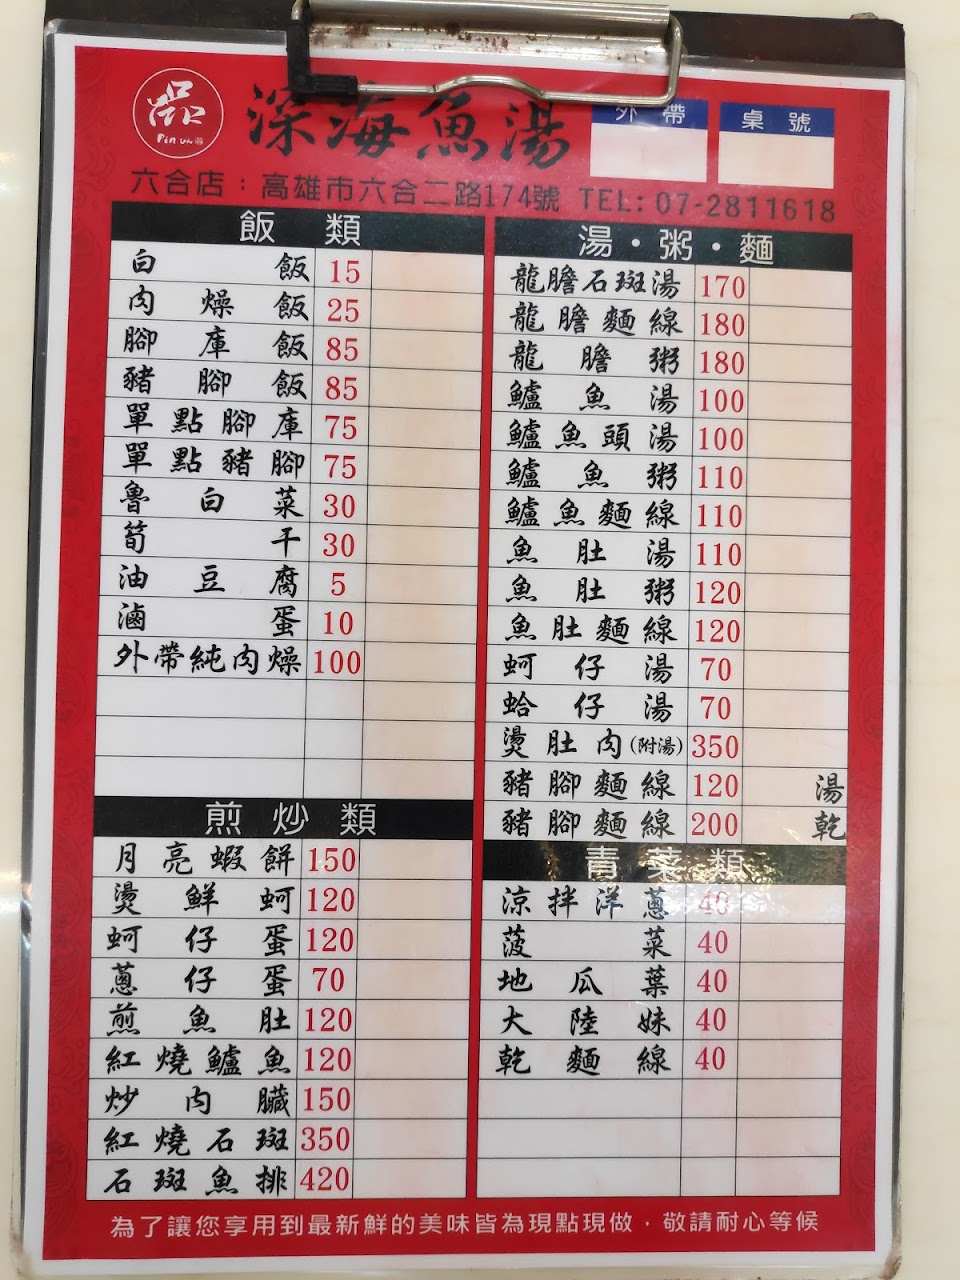 品 深海魚湯
外帶 桌號
六合店：高雄市六合二路174號 TEL: 07-2811618
飯類
白飯 15
肉燥飯 25
腳庫飯 85
豬腳飯 85
單點腳庫 75
單點豬腳 75
魯白菜 30
筍干 30
油豆腐 5
滷蛋 10
外帶純肉燥 100
煎炒類
月亮蝦餅 150
燙鮮蚵 120
蚵仔蛋 120
蔥仔蛋 70
煎魚肚 120
紅燒鱸魚 120
炒內臟 150
紅燒石斑 350
石斑魚排 420
湯・粥・麵
龍膽石斑湯 170
龍膽麵線 180
龍膽粥 180
鱸魚湯 100
鱸魚頭湯 100
鱸魚粥 110
鱸魚麵線 110
魚肚湯 110
魚肚粥 120
魚肚麵線 120
蚵仔湯 70
蛤仔湯 70
燙肚肉(附湯) 350
豬腳麵線 120 湯
豬腳麵線 200 乾
青菜類
涼拌洋蔥 40
菠菜 40
地瓜葉 40
大陸妹 40
乾麵線 40
為了讓您享用到最新鮮的美味皆為現點現做，敬請耐心等候